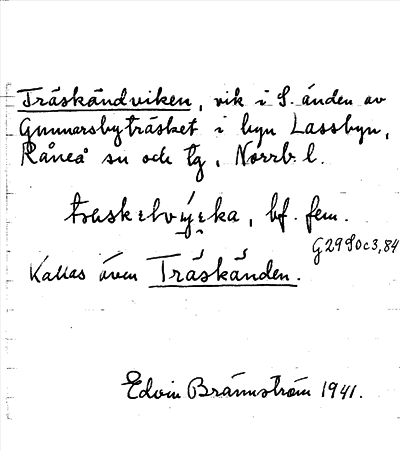 Träskändviken, vik i S. änden av
Gunnarsbyträsket i byn Lassbyn,
Råneå sn och tg, Norrb. l.
bf. fem.
G 29 S0c3,84
Kallas även Träskänden.
Edvin Brännström 1941.